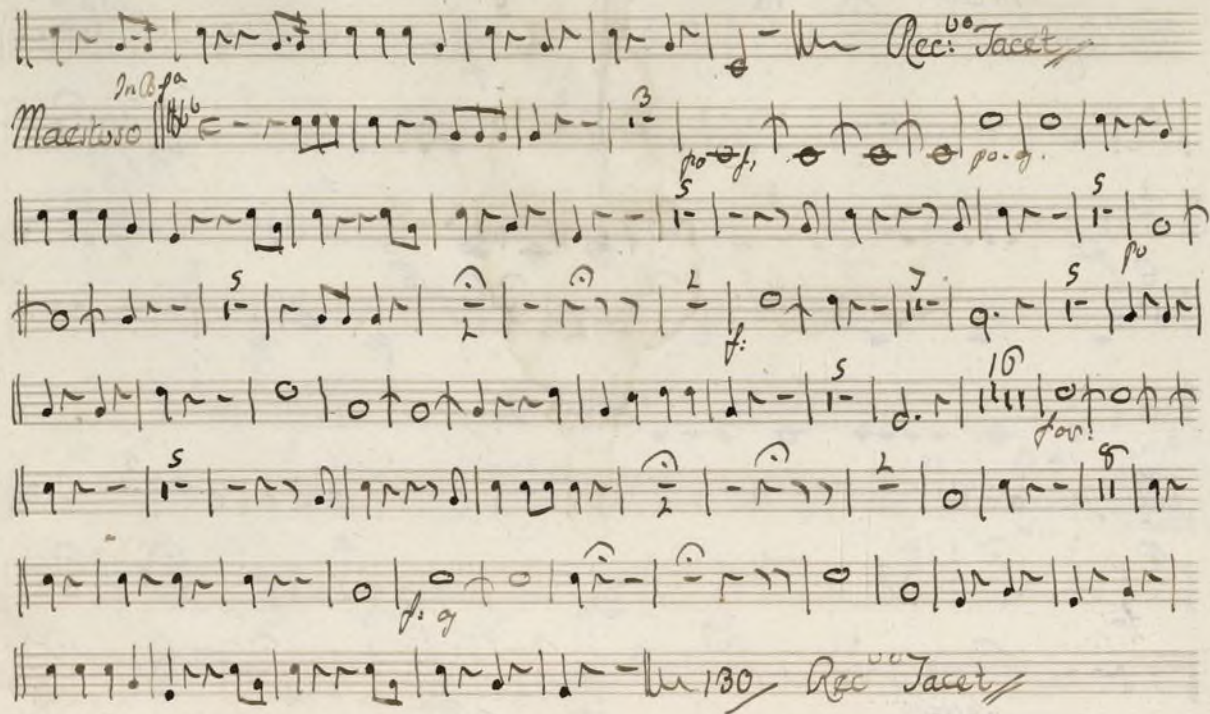 Rec:vo Jacet
In B fa
Maestoso
3
po f, po. f.
5 5
po
5 2 2 3 5
f:
5 16
for:
5 2 2 8
f: f
130 Rec vo Jacet